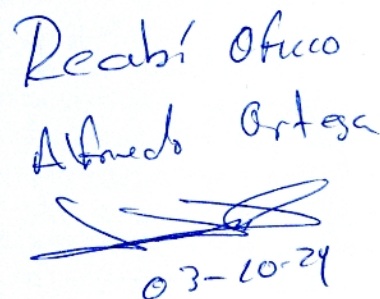 Recabí Oficio
Alfonedo Ortega
03-10-24